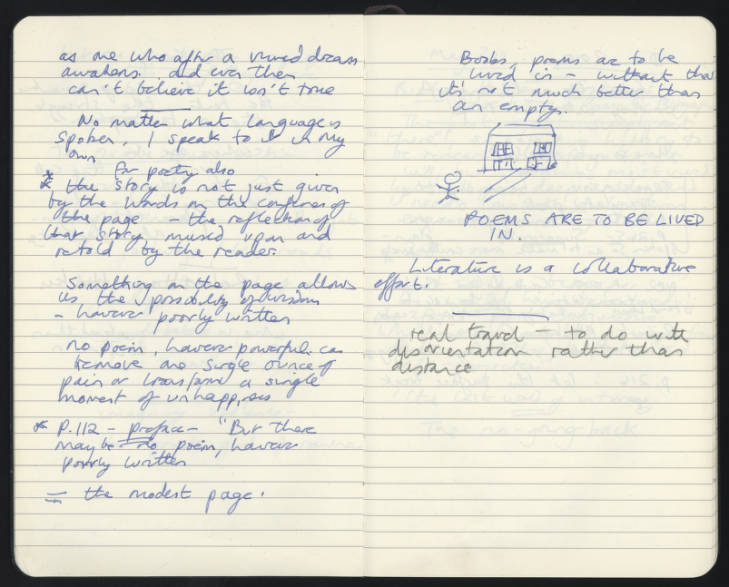 as one who after a vivid dream
awakens and even then
can't believe it isn't true
No matter what language is
spoken, I speak to it in my
own
for poetry also
* the story is not just given
by the words on the confines of
the page – the reflection of
that story mused upon and
retold by the reader.
Something on the page allows
us the possibility of
– however poorly written
no poem, however powerful can
remove one single ounce of
pain or transform a single
moment of unhappiness
* P.112 – preface – "But there
may be no poem, however
poorly written
= the modest page.
Books, poems are to be
lived in – without that
it's not much better than
an empty.
POEMS ARE TO BE LIVED
IN.
Literature is a collaborative
effort.
real travel – to do with
disorientation rather than
distance